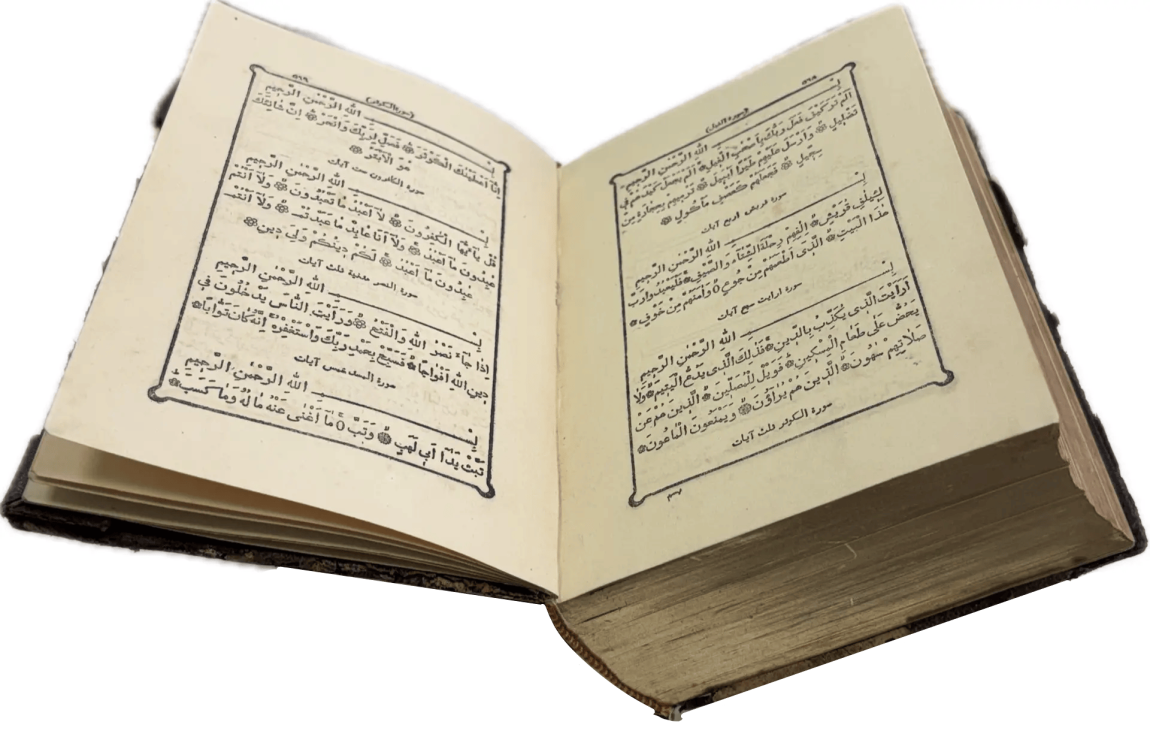 ٥٩٨
(سورة الفيل)
بِسْمِ اللهِ الرَّحْمٰنِ الرَّحِيمِ
اَلَمْ تَرَ كَيْفَ فَعَلَ رَبُّكَ بِاَصْحٰبِ الْفِيلِ ۞ اَلَمْ يَجْعَلْ كَيْدَهُمْ فِي
تَضْلِيلٍ ۞ وَاَرْسَلَ عَلَيْهِمْ طَيْرًا اَبَابِيلَ ۞ تَرْمِيهِمْ بِحِجَارَةٍ مِنْ
سِجِّيلٍ ۞ فَجَعَلَهُمْ كَعَصْفٍ مَأْكُولٍ ۞
سورة قريش اربع آيات
بِسْمِ اللهِ الرَّحْمٰنِ الرَّحِيمِ
لِاِيلٰفِ قُرَيْشٍ ۞ اٖلٰفِهِمْ رِحْلَةَ الشِّتَٓاءِ وَالصَّيْفِ ۞ فَلْيَعْبُدُوا رَبَّ
هٰذَا الْبَيْتِ ۞ اَلَّذٖٓى اَطْعَمَهُمْ مِنْ جُوعٍ ۞ وَاٰمَنَهُمْ مِنْ خَوْفٍ ۞
سورة ارايت سبع آيات
بِسْمِ اللهِ الرَّحْمٰنِ الرَّحِيمِ
اَرَاَيْتَ الَّذٖى يُكَذِّبُ بِالدّٖينِ ۞ فَذٰلِكَ الَّذٖى يَدُعُّ الْيَتٖيمَ ۞ وَلَا
يَحُضُّ عَلٰى طَعَامِ الْمِسْكٖينِ ۞ فَوَيْلٌ لِلْمُصَلّٖينَ ۞ اَلَّذٖينَ هُمْ عَنْ
صَلَاتِهِمْ سَاهُونَ ۞ اَلَّذٖينَ هُمْ يُرَٓاؤُنَ ۞ وَيَمْنَعُونَ الْمَاعُونَ ۞
سورة الكوثر ثلث آيات
٥٩٩
(سورة الكوثر)
بِسْمِ اللهِ الرَّحْمٰنِ الرَّحِيمِ
اِنَّٓا اَعْطَيْنَاكَ الْكَوْثَرَ ۞ فَصَلِّ لِرَبِّكَ وَانْحَرْ ۞ اِنَّ شَانِئَكَ
هُوَ الْاَبْتَرُ ۞
سورة الكافرون ست آيات
بِسْمِ اللهِ الرَّحْمٰنِ الرَّحِيمِ
قُلْ يَٓا اَيُّهَا الْكَافِرُونَ ۞ لَٓا اَعْبُدُ مَا تَعْبُدُونَ ۞ وَلَٓا اَنْتُمْ
عَابِدُونَ مَٓا اَعْبُدُ ۞ وَلَٓا اَنَا عَابِدٌ مَا عَبَدْتُمْ ۞ وَلَٓا اَنْتُمْ
عَابِدُونَ مَٓا اَعْبُدُ ۞ لَكُمْ دٖينُكُمْ وَلِىَ دٖينِ ۞
سورة النصر مدنية ثلث آيات
بِسْمِ اللهِ الرَّحْمٰنِ الرَّحِيمِ
اِذَا جَٓاءَ نَصْرُ اللهِ وَالْفَتْحُ ۞ وَرَاَيْتَ النَّاسَ يَدْخُلُونَ فِى
دٖينِ اللهِ اَفْوَاجًا ۞ فَسَبِّحْ بِحَمْدِ رَبِّكَ وَاسْتَغْفِرْهُ اِنَّهُ كَانَ تَوَّابًا ۞
سورة المسد خمس آيات
بِسْمِ اللهِ الرَّحْمٰنِ الرَّحِيمِ
تَبَّتْ يَدَٓا اَبٖى لَهَبٍ وَتَبَّ ۞ مَٓا اَغْنٰى عَنْهُ مَالُهُ وَمَا كَسَبَ ۞